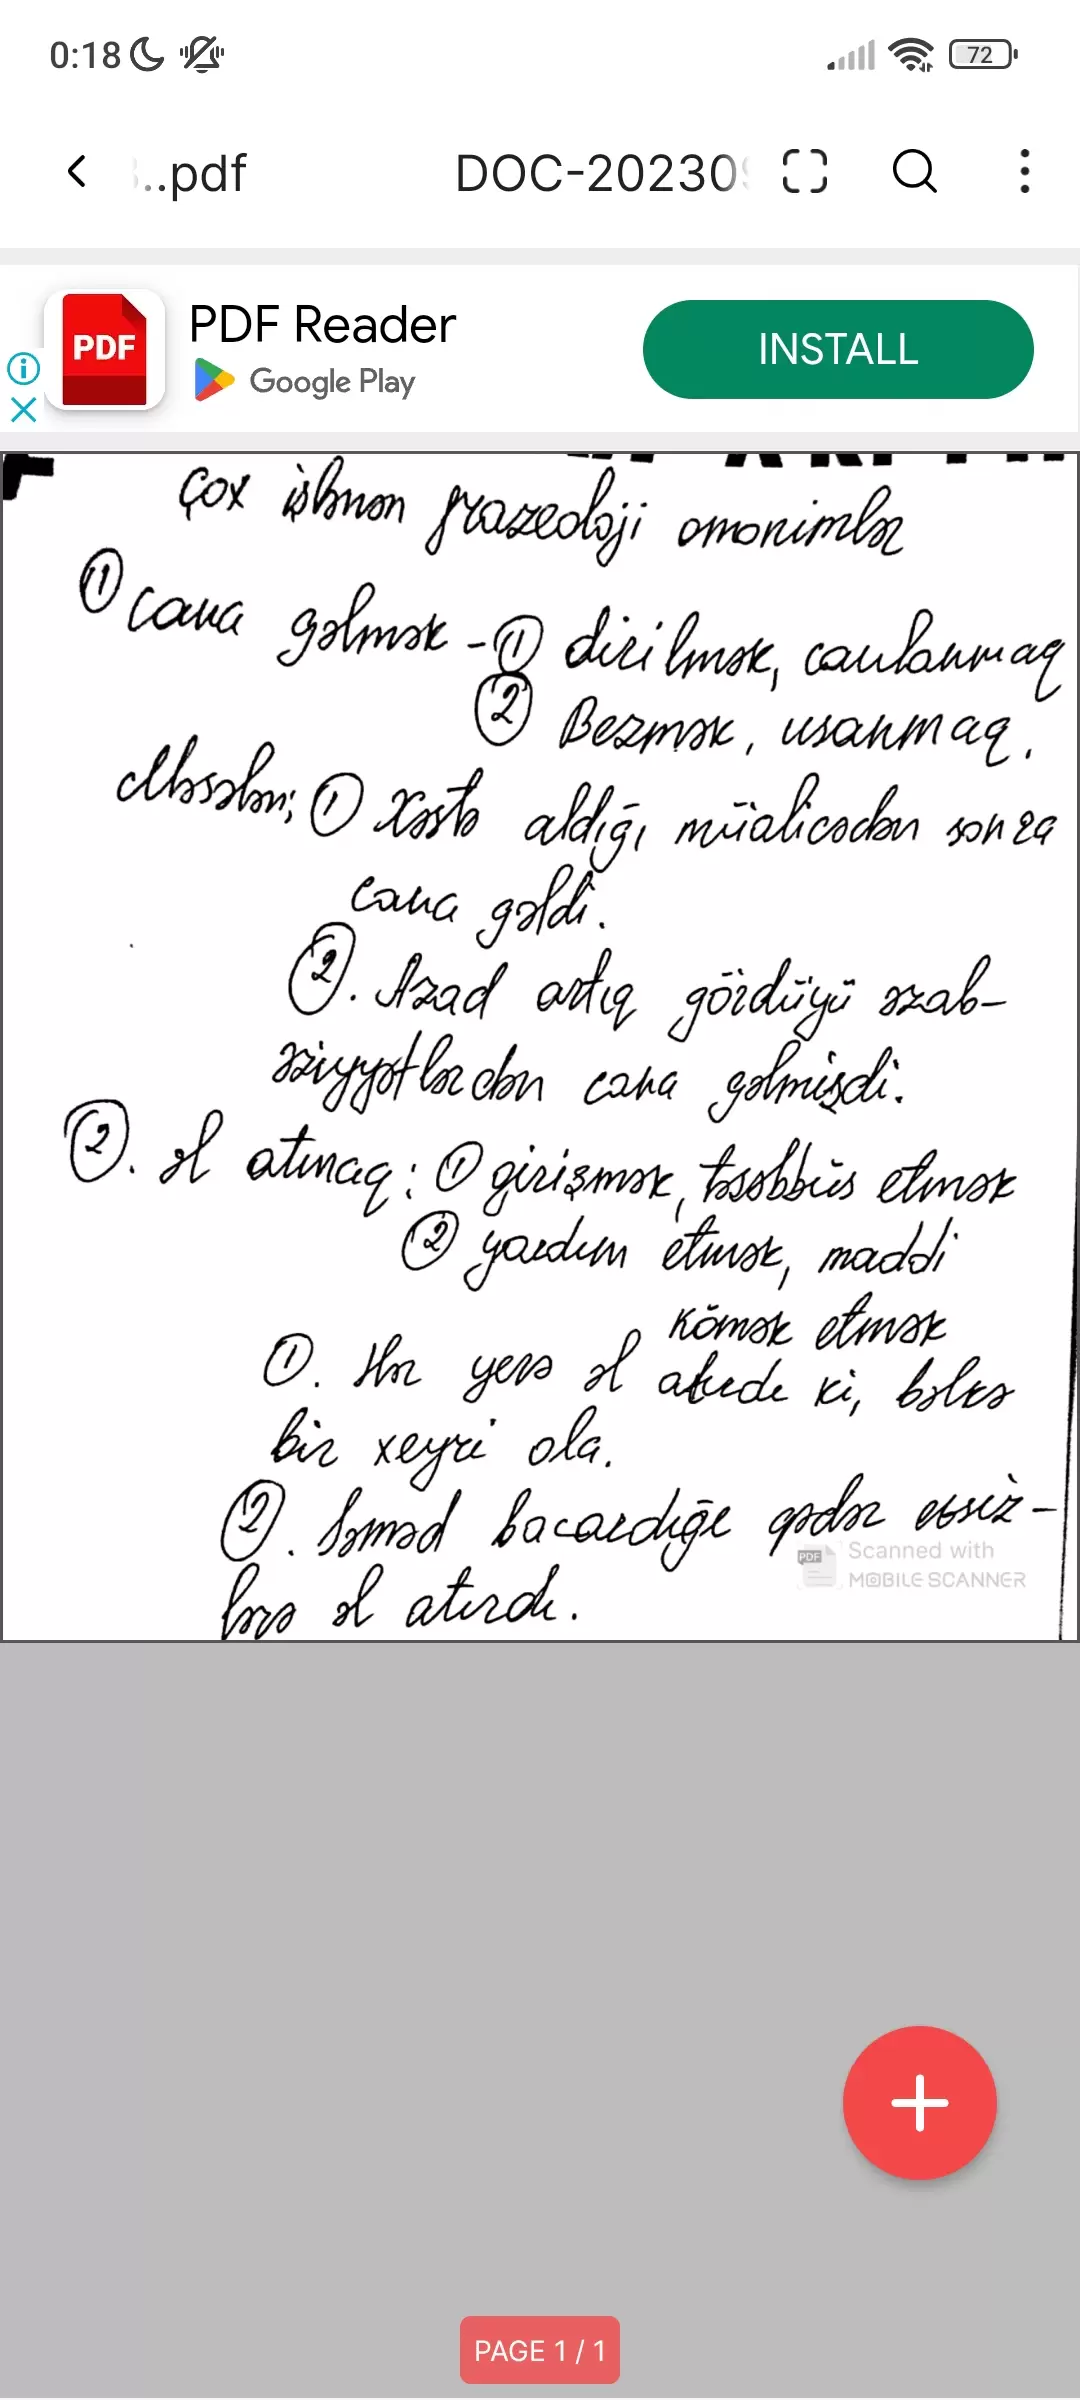 0:18
72
..pdf
DOC-202309
PDF
PDF Reader
Google Play
INSTALL
Çox işlənən frazeoloji omonimlər
① cana gəlmək - ① dirilmək, canlanmaq
② Bezmək, usanmaq.
Məsələn; ① Xəstə aldığı müalicədən sonra
cana gəldi.
②. Azad artıq gördüyü əzab-
əziyyətlərdən cana gəlmişdi.
②. əl atmaq: ① girişmək, təşəbbüs etmək
② yardım etmək, maddi
kömək etmək
①. Hər yerə əl atırdı ki, bəlkə
bir xeyri ola.
②. Səməd bacardığı qədər evsiz-
lərə əl atırdı.
PDF
Scanned with
MOBILE SCANNER
PAGE 1 / 1